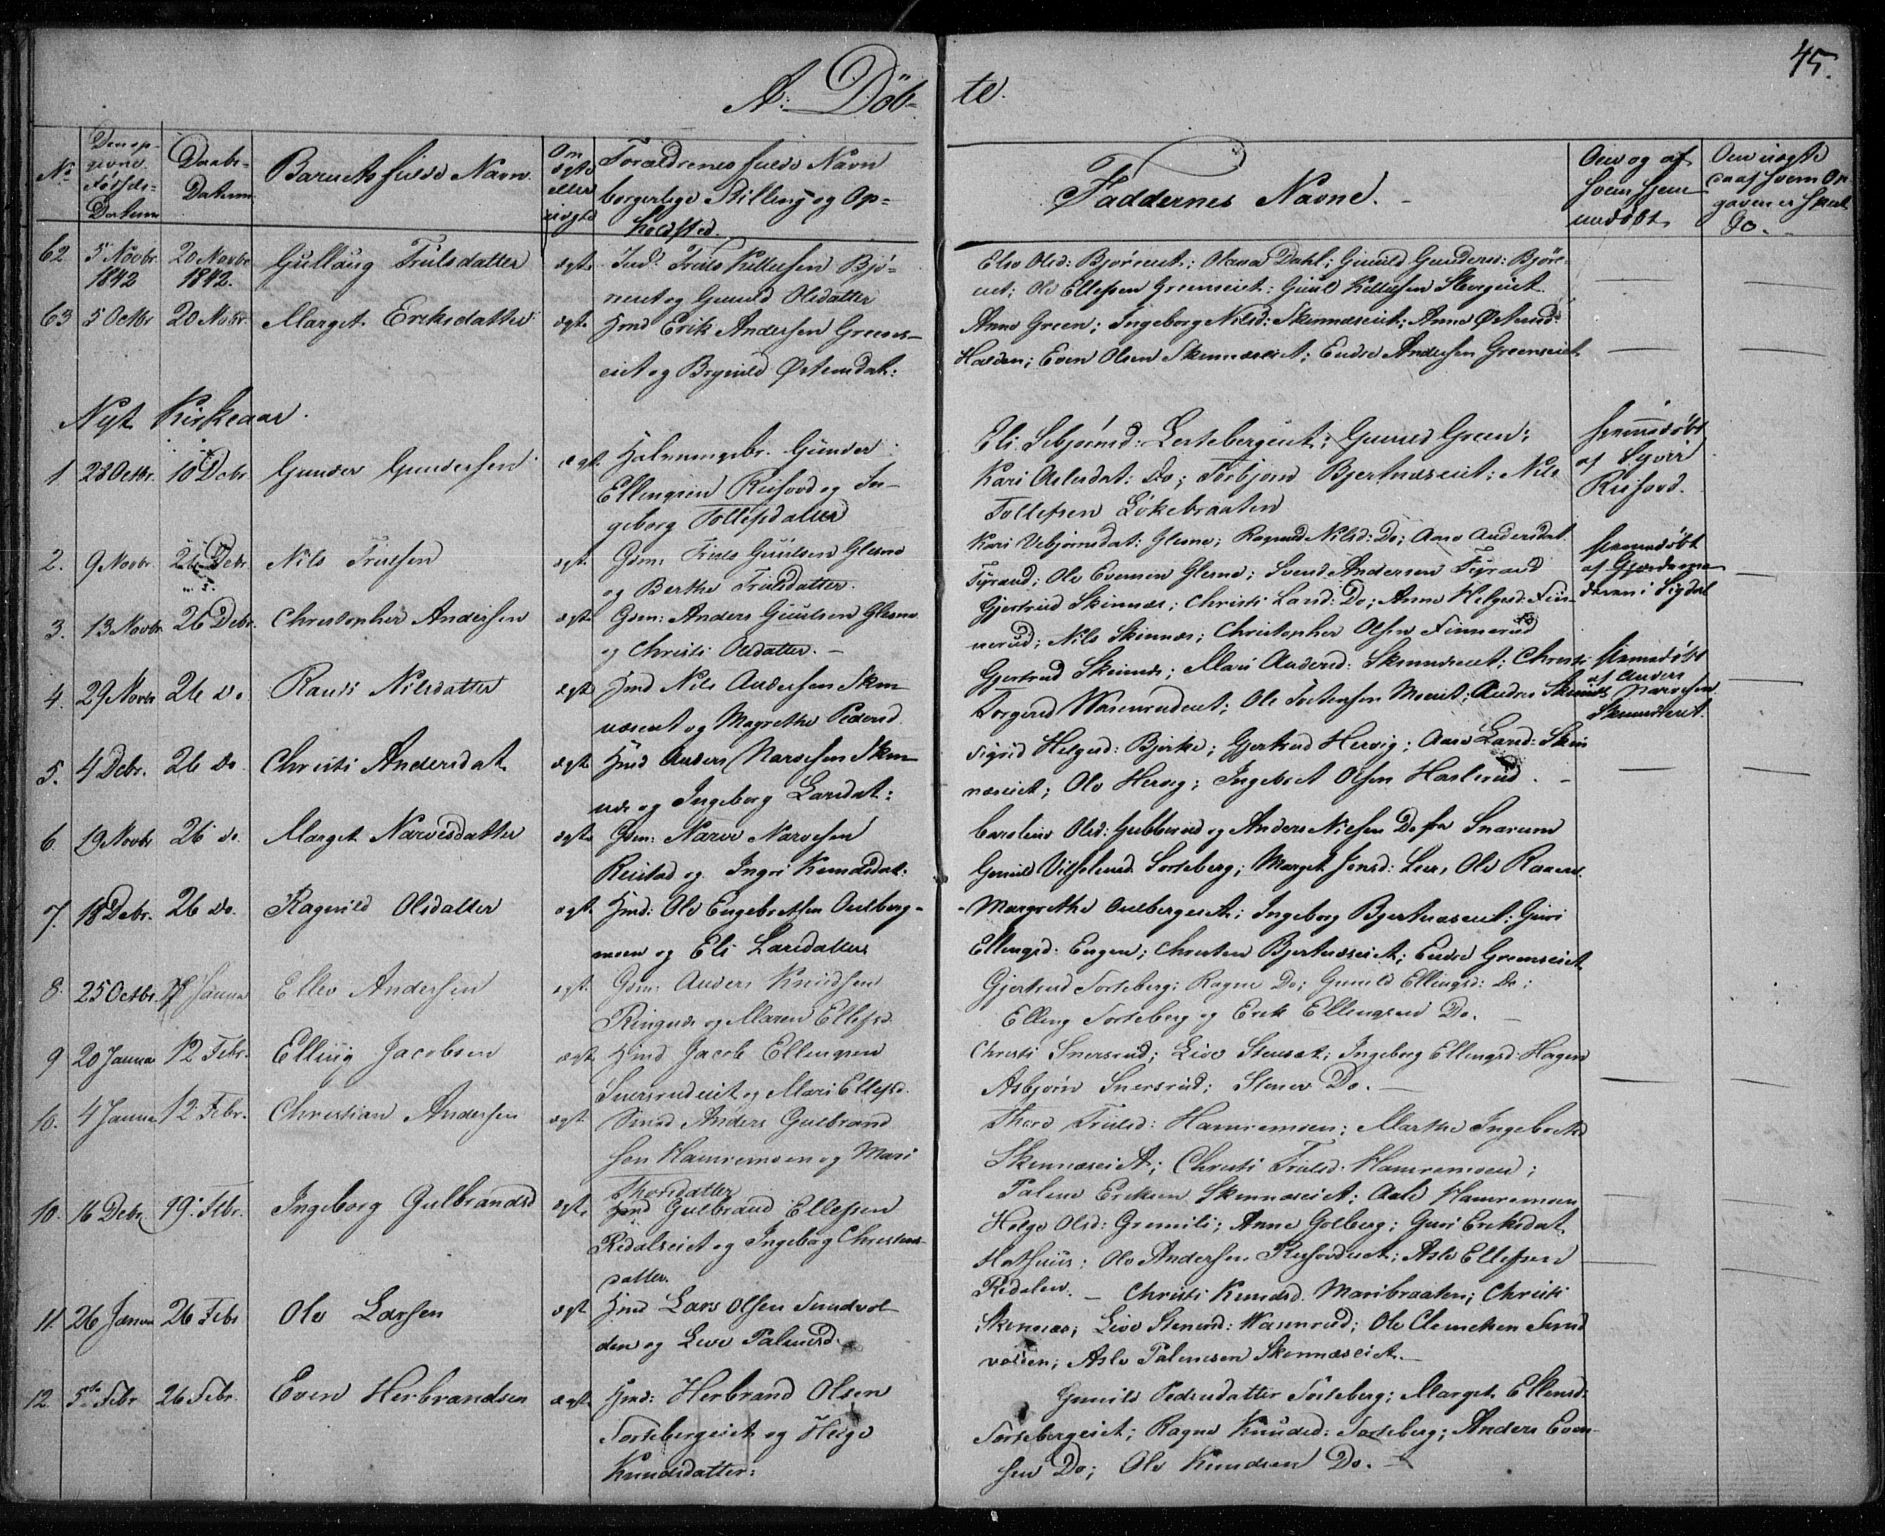 45.
A. Döb-
te.
No
Den op-
givne
Fødsels-
Datum
Daabs-
Datum
Barnets fulde Navn.
Om
ægte
eller
uægte
Forældrenes fulde Navn
borgerlige Stilling og Op-
holdsted.
Faddernes Navne.
Om og af
hvem hjem-
medöbt
Om uægte
62 5 Novbr 1842 20 Novbr 1842. Gullaug Trulsdatter ægte Truls Kittelsen Bjö-
reiet og Gunild Olsdatter
Else Olsd: Björeiet; Dahl; Gunild Gundersd: Björe-
iet; Ole Ellefsen Greenseiet; Kittelsen
63 5 Octbr 20 Novbr Marget Eriksdatter ægte Hmd Erik Andersen Greens-
eiet og Brynild Østensdat:
Anne Green; Ingeborg Nilsd: Skinnæseiet; Anne Østensd:
Halden; Even Olsen Skinnæseiet; Endre Andersen Greenseiet
Nyt Kirkeaar.
1 28 Octbr. 18 Debr Gunder Gundersen ægt. Gunder
Ellingsen Riisford og In-
geborg Tollefsdatter
Eli Gunild Green;
Kari Do; Torbjörn Bjertnæseiet; Nils
Tollefsen Lökebraaten
hjemmedöbt
af
Riisford.
2. 9 Novbr. 26 Debr Nils Trulsen ægt. Gsm: Truls Guulsen Glesne
og Berthe Trulsdatter.
Kari Vebjörnsdat: Glesne; Ragnild Nilsd: Do; Aase Andersdat
Fyrand; Ole Evensen Glesne; Svend Andersen Fyrand
hjemmedöbt
af Gjordemo-
deren i Sigdal
3. 13 Novbr 26 Debr. Christopher Andersen ægt. Gsm: Anders Guulsen Glesne
og Christi Olsdatter. –
Gjertrud Skinnes; Christi Land: Do; Anne Helgesd: Fin-
nerud; Nils Skinnes; Christopher Olsen Finnerud
4. 29 Novbr 26 do Randi Nilsdatter ægt Hmd Nils Andersen Skin-
næseiet og Magrethe Pedersd
Gjertrud Skinnes; Mari Andersd: Skinnæseiet; Christi
Torgersd ; Ole Moeiet; Andres Skinnes
hjemmedöbt
af Anders
Narvesen
Skinnæseiet.
5. 4 Debr. 26 Do Christi Andersdat. ægt. Hmd Anders Narvesen Skin-
næs og Ingeborg Larsdat:
Sigrid Helgesd: Bjerke; Gjertrud Hervig; Aase Land: Skin
næseiet; Ole Hervig; Ingebret Olsen Haslerud. –
6. 19 Novbr 26 do. Marget Narvesdatter ægte Gsm: Narve Narvesen
Reistad og Ingri Knudsdat:
Caroline Olsd: Gubberud og Anders Nielsen Do fra Snarum
Gunild Sorteberg; Marget Jensd: Leer; Ole
7. 18 Debr. 26 do. Ragnild Olsdatter ægt. Hmd: Ole Engebretsen Aulberg-
moen og Eli Larsdatter
Margrethe Aulbergeiet; Ingeborg Bjertnæseiet; Guri
Ellingsd: Engen; Christen Bjertnæseiet; Endre Greenseiet
8. 25 Octbr. Janua Ellev Andersen ægt. Gsm: Anders Knudsen
Ringnes og Maren Ellefsd.
Gjertrud Sorteberg; Ragne Do; Gunild Ellingsd: Do:
Elling Sorteberg og Erik Ellingsen Do.
9 20 Janua 12 Febr. Elling Jacobsen ægt. Hmd Jacob Ellingsen
Snersrudeiet og Mari Ellefsd.
Christi Snersrud; Live ; Ingeborg Ellingsd: Hagen
Asbjörn Snersrud; Stener Do. –
10. 4 Janua 12 Febr. Christian Andersen ægt. Anders Gulbrand
sen Hamremoen og Mari
Thorsdatter
Thore Trulsd: Hamremoen; Marthe Ingebretsd
Skinnæseiet; Christi Trulsd: Hamremoen;
Palme Eriksen Skinnæseiet; Hamremoen
10. 16 Debr. 19: Febr. Ingeborg Gulbrandsd ægt. Hmd Gulbrand Ellefsen
Ridalseiet og Ingeborg Christens-
datter.
Helge Olsd: Gremili; Anne Golberg; Guri Eriksdat
; Ole Andersen Riisfordeiet; Asle Ellefsen
Ridalen. –
11. 26 Janua 26 Febr Ole Larsen ægt Hmd Lars Olsen Sundvol-
den og Live Palmesd.
Christi Knudsd. Maribraaten; Christi
Skinnæs; Live Stenersd: ; Ole Clemetsen Sund
volden; Asle Palmesen Skinnæseiet. –
12 5te Febr 26 Febr. Even Herbrandsen ægt. Hmd: Herbrand Olsen
Sortebergeiet og Helge
Knudsdatter:
Gunild Pedersdatter Sorteberg; Marget Ellensd:
Sortebergeiet; Ragne Knudsd: Sorteberg; Anders Even-
sen Do; Ole Knudsen Do. –